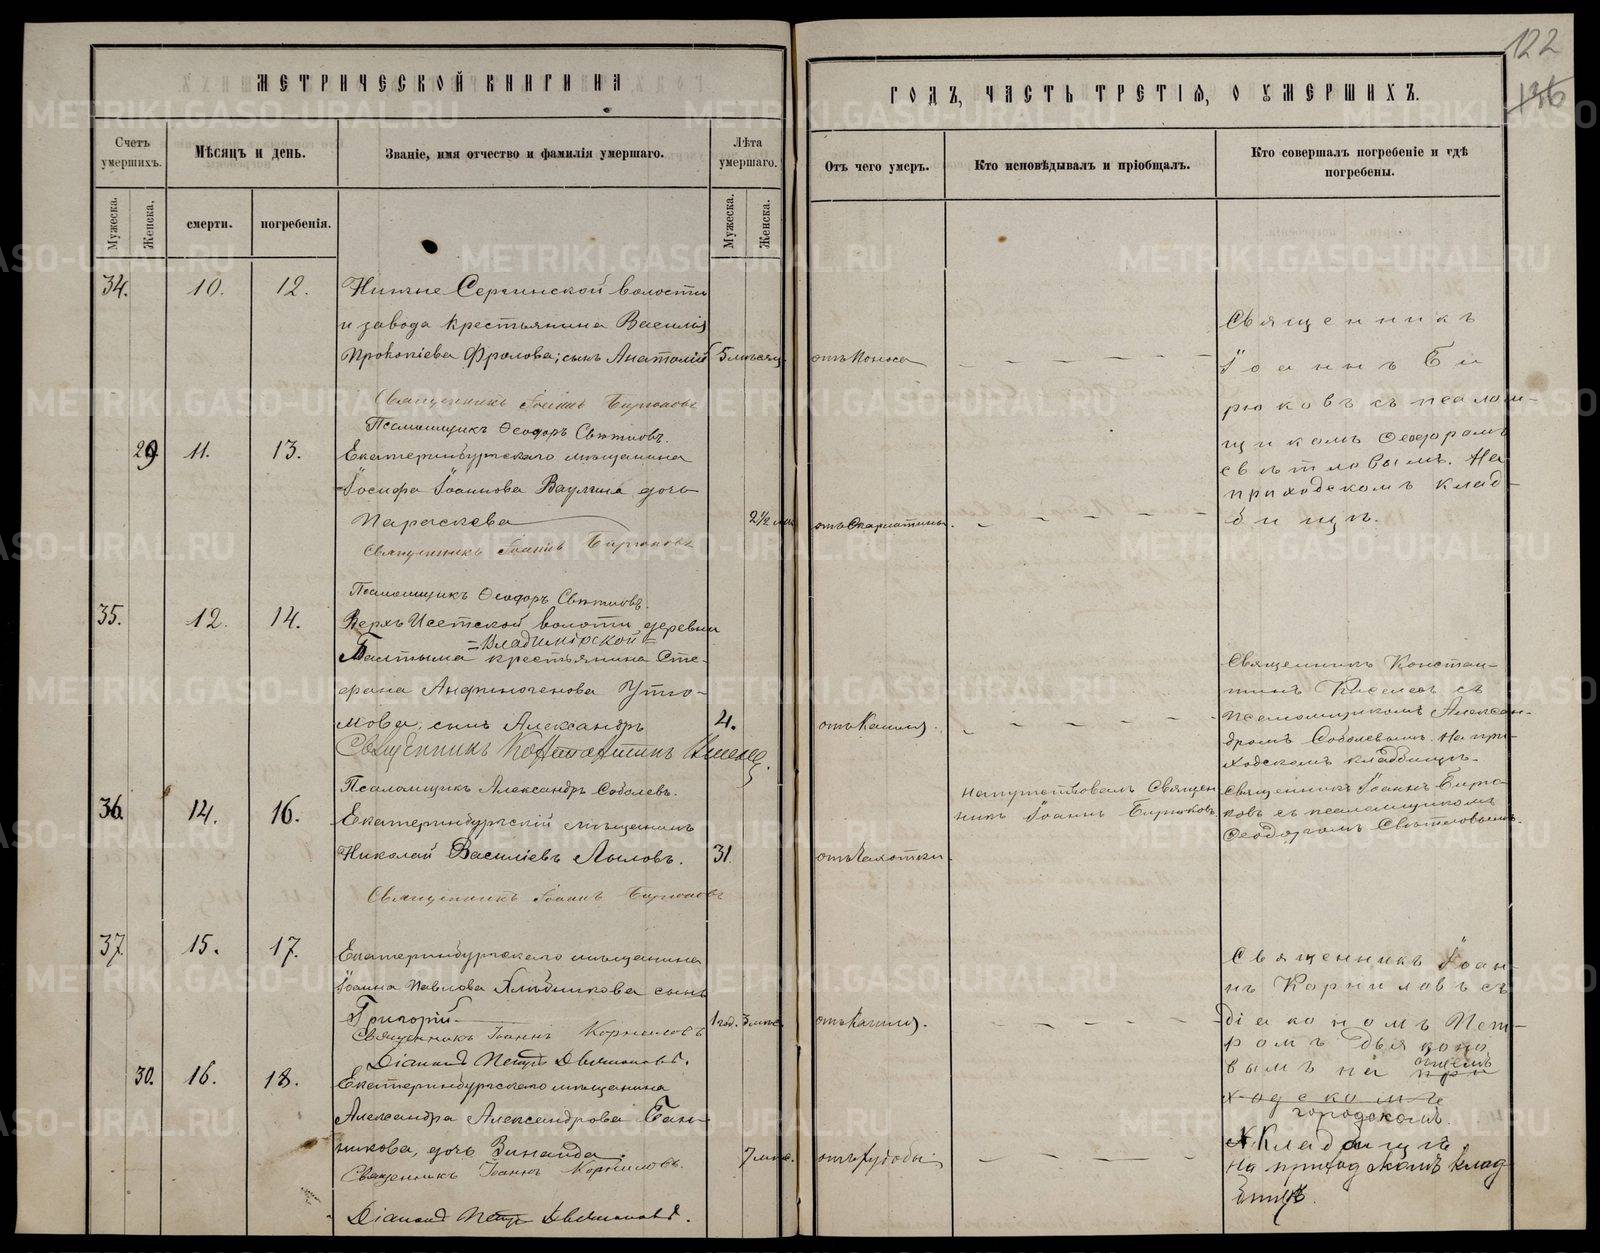 122
136
МЕТРИЧЕСКОЙ КНИГИ НА
ГОДЪ, ЧАСТЬ ТРЕТІЯ, О УМЕРШИХЪ.
Счетъ умершихъ.
Мѣсяцъ и день.
Званіе, имя отчество и фамилія умершаго.
Лѣта умершаго.
Отъ чего умеръ.
Кто исповѣдывалъ и пріобщалъ.
Кто совершалъ погребеніе и гдѣ погребены.
Мужеска.
Женска.
смерти.
погребенія.
Мужеска.
Женска.
34. 10. 12. Нижне Сергинской волости
и завода крестьянина Василія
Прокопіева Фролова; сынъ Анатолій 5 мѣсяц. отъ поноса
Священникъ
Іоаннъ Би
рюковъ съ псалом-
щикомъ Ѳеодоромъ
Свѣтловымъ. На
приходскомъ клад-
бищѣ.
Священникъ Іоаннъ Бирюковъ
Псаломщикъ Ѳеодоръ Свѣтловъ.
29 11. 13. Екатеринбургскаго мѣщанина
Іосифа Іоаннова Ваулина дочь
Параскева 2½ отъ скарлатины.
Священникъ Іоаннъ Бирюковъ
Псаломщикъ Ѳеодоръ Свѣтловъ.
35. 12. 14. Верхъ Исетской волости деревни
=Владимірской=
Балтыма крестьянина Сте-
фана Анфиногенова Уто-
мова, сынъ Александръ 4. отъ кашля.
Священникъ Констан-
тинъ съ
псаломщикомъ Алексан-
дромъ Соболевымъ. На при-
ходскомъ кладбищѣ.
Священникъ Константинъ
Псаломщикъ Александръ Соболевъ.
36. 14. 16. Екатеринбургскій мѣщанинъ
Николай Василіевъ Лыловъ. 31. отъ чахотки.
напутствовалъ Священ
никъ Іоаннъ Бирюковъ
Священникъ Іоаннъ Бирю-
ковъ съ псаломщикомъ
Ѳеодоромъ Свѣтловымъ.
Священникъ Іоаннъ Бирюковъ
37. 15. 17. Екатеринбургскаго мѣщанина
Іоанна Павлова Хлѣбникова сынъ
Григорій 1 год. 3 мѣс. отъ кашля.
Священникъ Іоан-
нъ Корниловъ съ
діакономъ Пет-
ромъ Дьяконо
вымъ на при
общемъ
ходскомъ
городскомъ.
кладбищѣ
Священникъ Іоаннъ Корниловъ
Діаконъ Петръ
30. 16. 18. Екатеринбургскаго мѣщанина
Александра Александрова Бан-
никова, дочь Зинаида. 7 мѣс. отъ худобы
на приходскомъ клад
бищѣ.
Священникъ Іоаннъ Корниловъ.
Діаконъ Петръ
METRIKI.GASO-URAL.RU